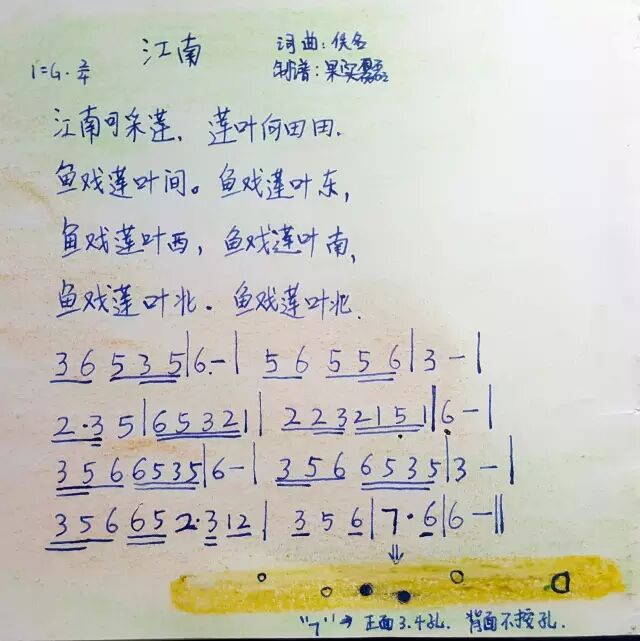 江南
词曲:佚名
1=G·2/4
制谱:果实磊磊
江南可采莲，莲叶何田田.
鱼戏莲叶间。鱼戏莲叶东，
鱼戏莲叶西，鱼戏莲叶南，
鱼戏莲叶北.鱼戏莲叶北.
36 535|6-| 56 556|3-|
2·35|65321| 2232151|6-|
35666535|6-| 35666535|3-|
35665 2·312| 356|7·6|6-||
"7"→正面3.4孔. 背面不按孔.